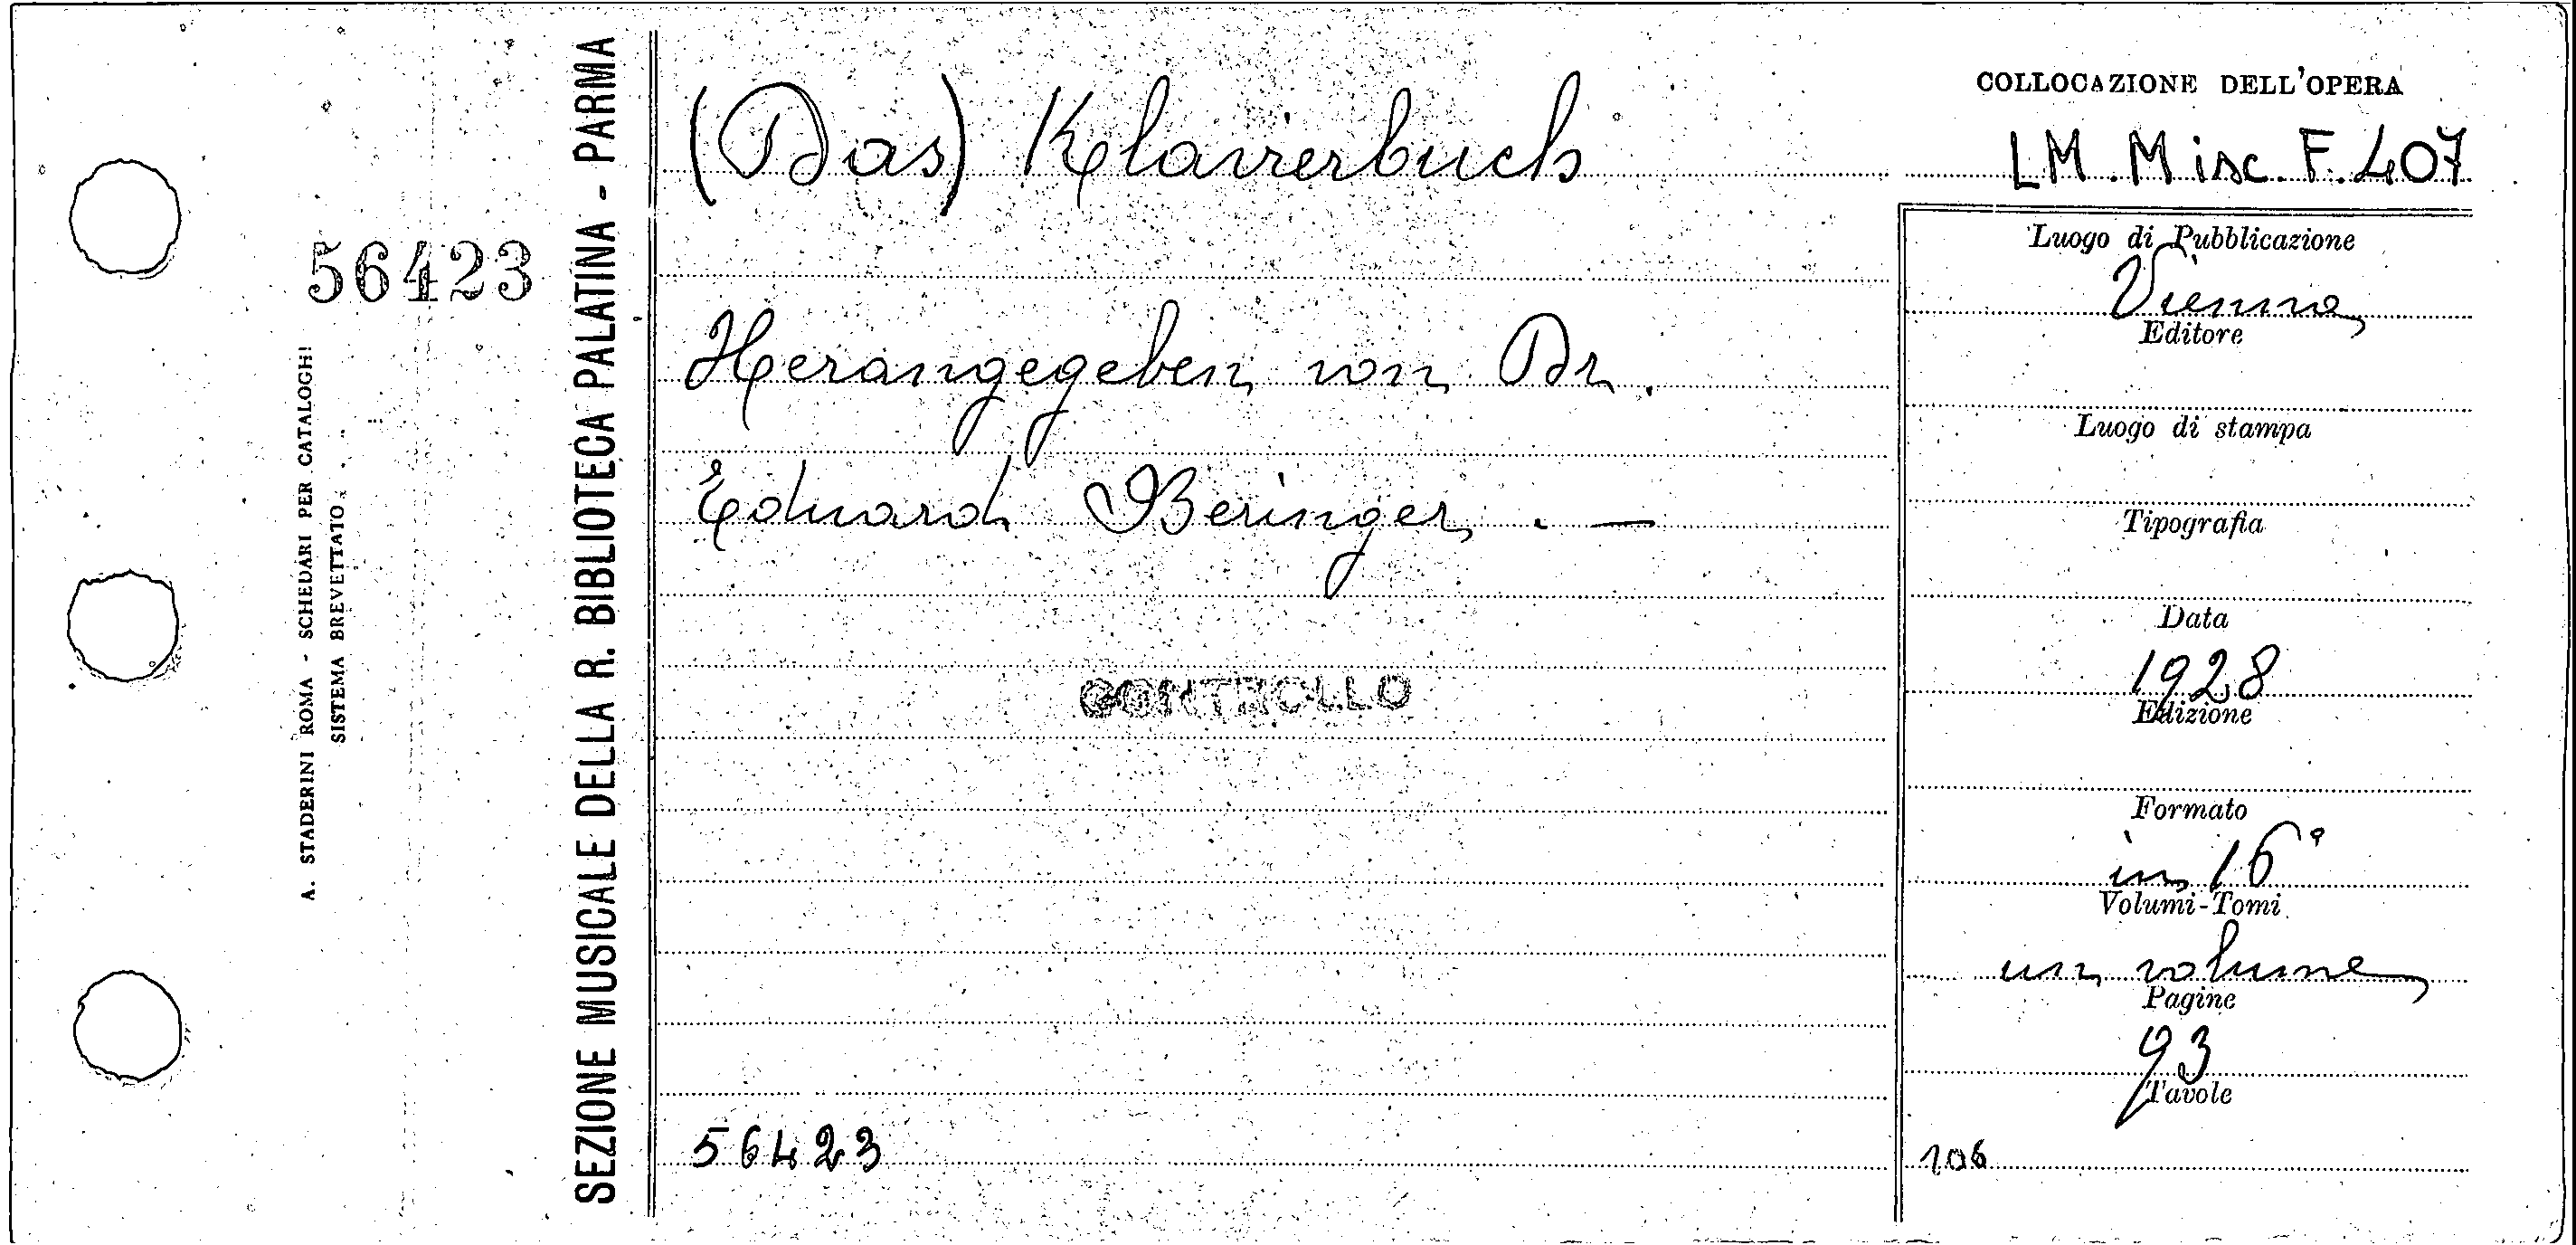 56423
A. STADERINI ROMA - SCHEDARI PER CATALOGHI
SISTEMA BREVETTATO
SEZIONE MUSICALE DELLA R. BIBLIOTECA PALATINA - PARMA
(Das) Klavierbuch
Herangegeben von Dr.
Eduard Beringer . —
CONTROLLO
56423
COLLOCAZIONE DELL'OPERA
LM. Misc. F. 407
Luogo di Pubblicazione
Vienna
Editore
Luogo di stampa
Tipografia
Data
1928
Edizione
Formato
in 16°
Volumi-Tomi
un volume
Pagine
93
Tavole
106